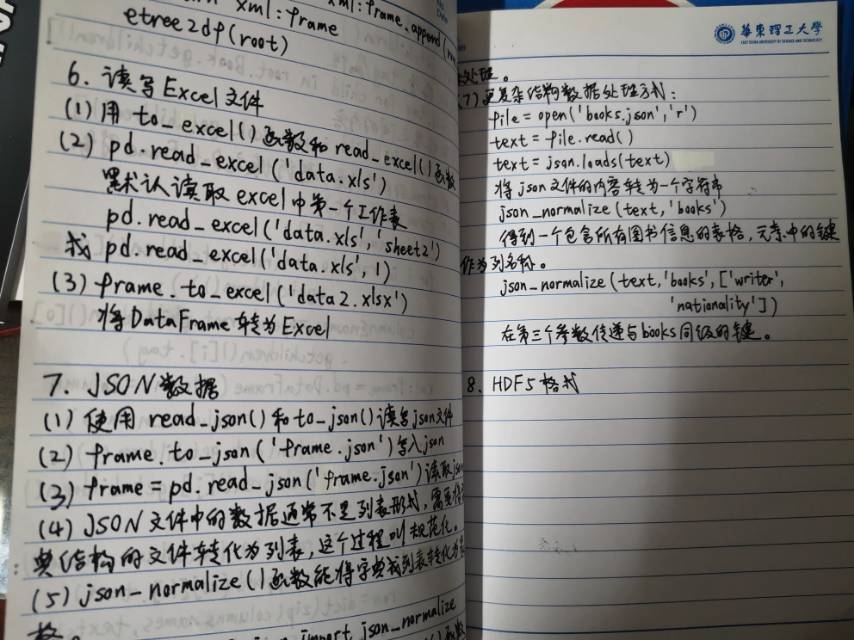 xml:frame xml:frame.append(
etree2df(root)
6. 读写Excel文件
(1) 用 to_excel()函数和 read_excel()函数
(2) pd.read_excel('data.xls')
默认读取excel中第一个工作表
pd.read_excel('data.xls','sheet2')
或 pd.read_excel('data.xls',1)
(3) frame.to_excel('data2.xlsx')
将DataFrame转为Excel
7. JSON数据
(1) 使用 read_json()和to_json()读写json文件
(2) frame.to_json('frame.json')写入json
(3) frame=pd.read_json('frame.json')读取json
(4) JSON文件中的数据通常不是列表形式,需要将
典结构的文件转化为列表,这个过程叫规范化。
(5) json_normalize()函数能将字典或列表转化为
格。
import json_normalize
華東理工大學
EAST CHINA UNIVERSITY OF SCIENCE AND TECHNOLOGY
处理。
(7) 更复杂结构数据处理方式:
file=open('books.json','r')
text=file.read()
text=json.loads(text)
将json文件的内容转为一个字符串
json_normalize(text,'books')
得到一个包含所有图书信息的表格,元素中的键
作为列名称。
json_normalize(text,'books',['writer',
'nationality'])
在第三个参数传递与books同级的键。
8. HDF5格式